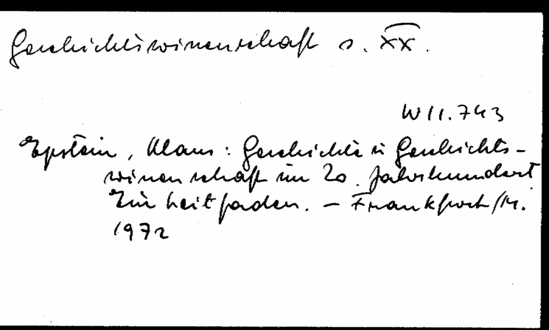 Geschichtswissenschaft s. XX.
W 11.743
Epstein, Klaus: Geschichte u Geschichts-
wissenschaft im 20. Jahrhundert
Ein Leitfaden. – Frankfurt/M.
1972